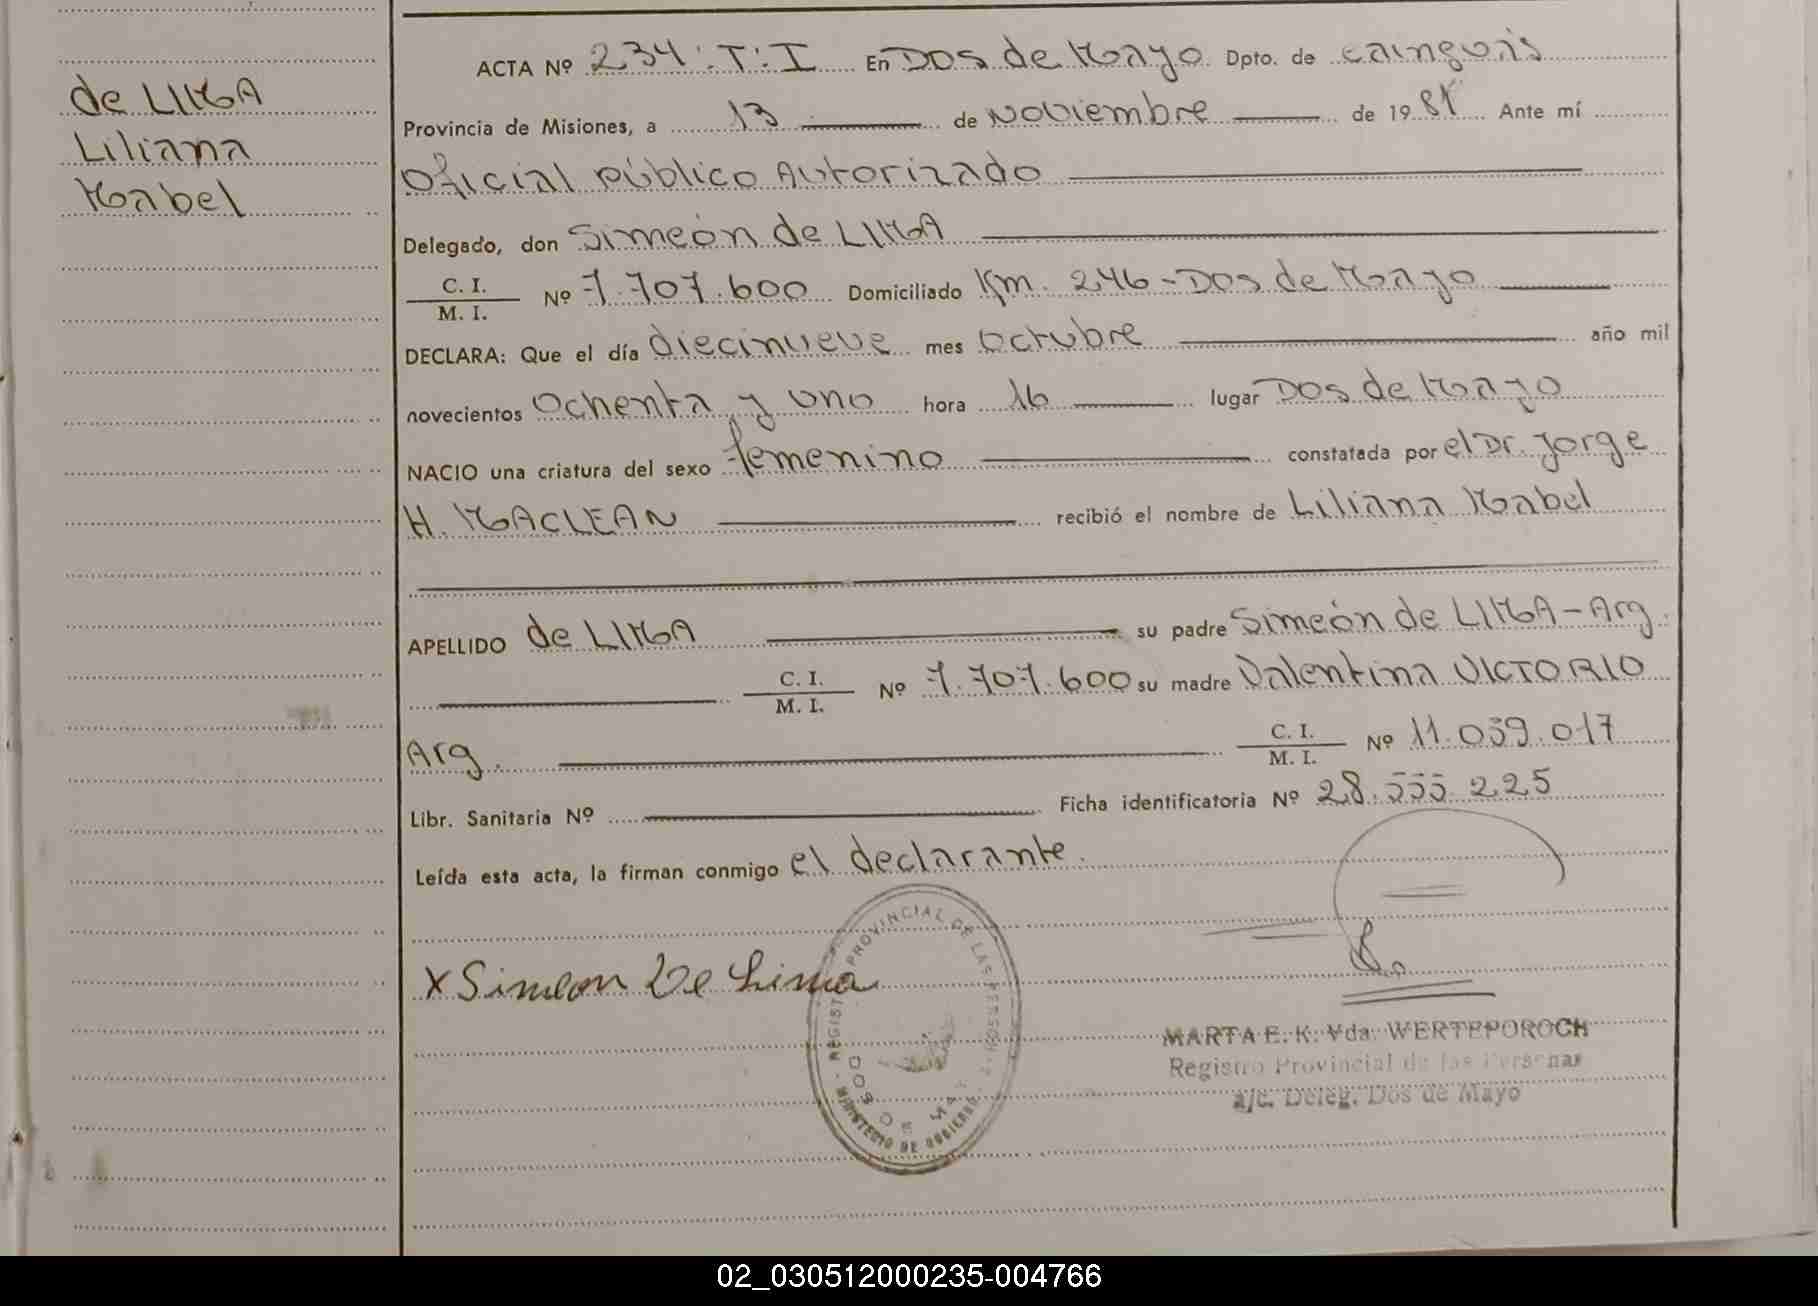 de LIMA
Liliana
Mabel
ACTA Nº 234 : T : I En Dos de Mayo Dpto. de Cainguás
Provincia de Misiones, a 13 de Noviembre de 1981 Ante mí
Oficial Público Autorizado
Delegado, don Simeón de LIMA
C. I.
M. I. Nº 7.707.600 Domiciliado Km. 246 - Dos de Mayo
DECLARA: Que el día diecinueve mes Octubre año mil
novecientos Ochenta y uno hora 16 lugar Dos de Mayo
NACIO una criatura del sexo femenino constatada por el Dr. Jorge
H. MACLEAN recibió el nombre de Liliana Mabel
APELLIDO de LIMA su padre Simeón de LIMA - Arg.
C. I.
M. I. Nº 7.707.600 su madre Valentina VICTORIO
Arg. C. I.
M. I. Nº 11.059.017
Libr. Sanitaria Nº Ficha identificatoria Nº 28.555.225
Leída esta acta, la firman conmigo el declarante.
X Simeon De Lima
REGISTRO PROVINCIAL DE LAS PERSONAS
MINISTERIO DE GOBIERNO
DOS DE MAYO
MARTA E. K. Vda. WERTEPOROCH
Registro Provincial de las Personas
a/c. Deleg. Dos de Mayo
02_030512000235-004766